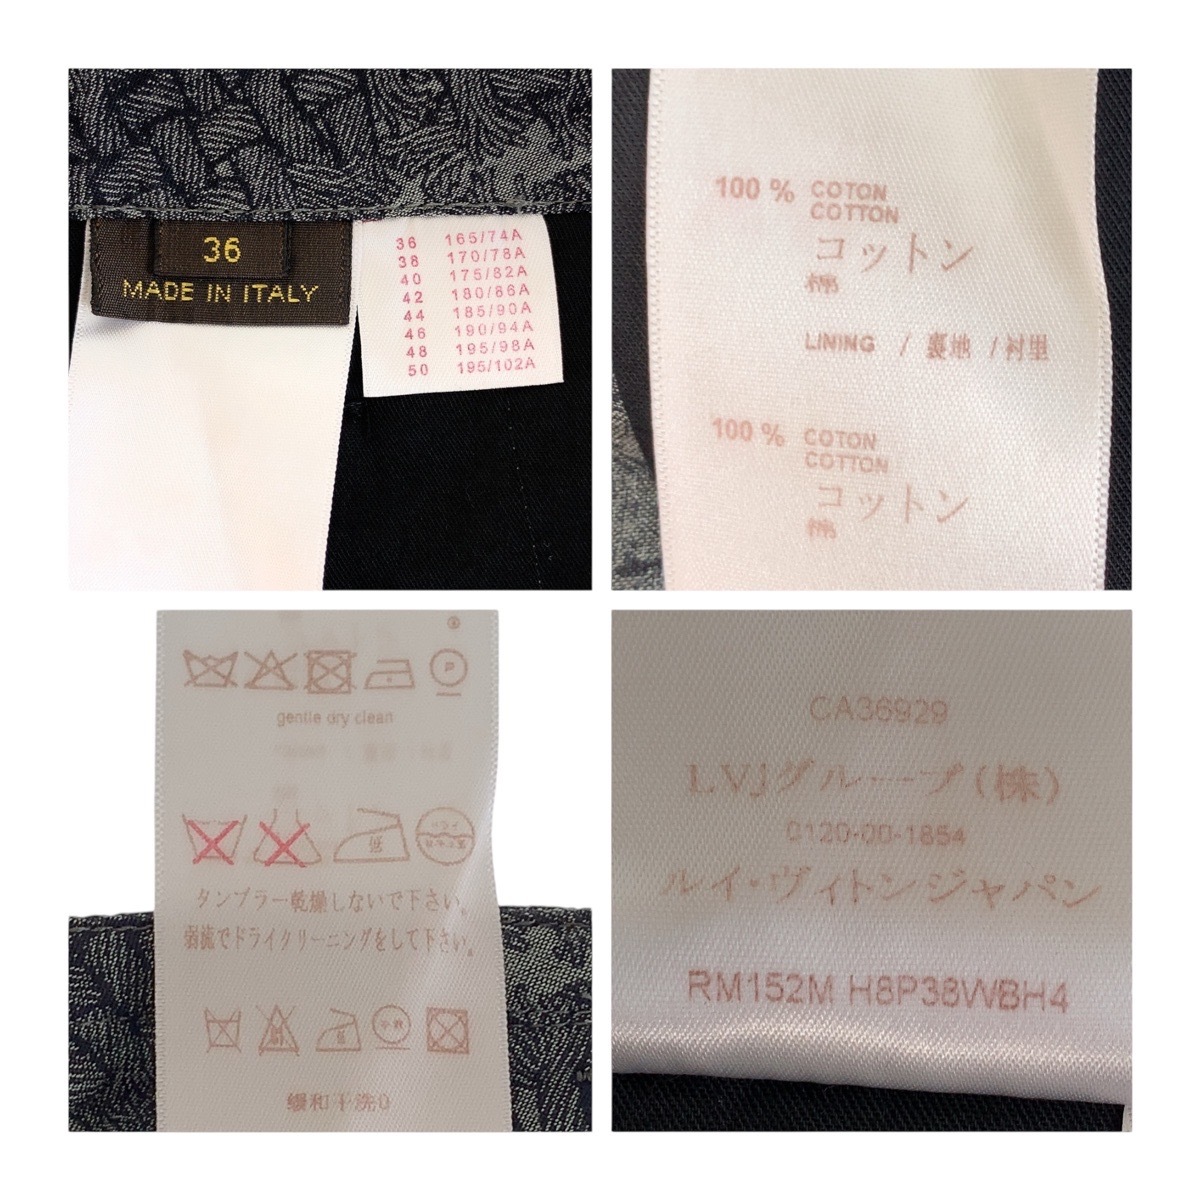 36
MADE IN ITALY
36 165/74A
38 170/78A
40 175/82A
42 180/86A
44 185/90A
46 190/94A
48 195/98A
50 195/102A
100 % COTON
COTTON
コットン
棉
LINING / 裏地 / 衬里
100 % COTON
COTTON
コットン
棉
P
gentle dry clean
低
タンブラー乾燥しないで下さい。
弱流でドライクリーニングをして下さい。
缓和干洗
CA36929
LVJグループ(株)
0120-00-1854
ルイ・ヴィトンジャパン
RM152M H8P38WBH4